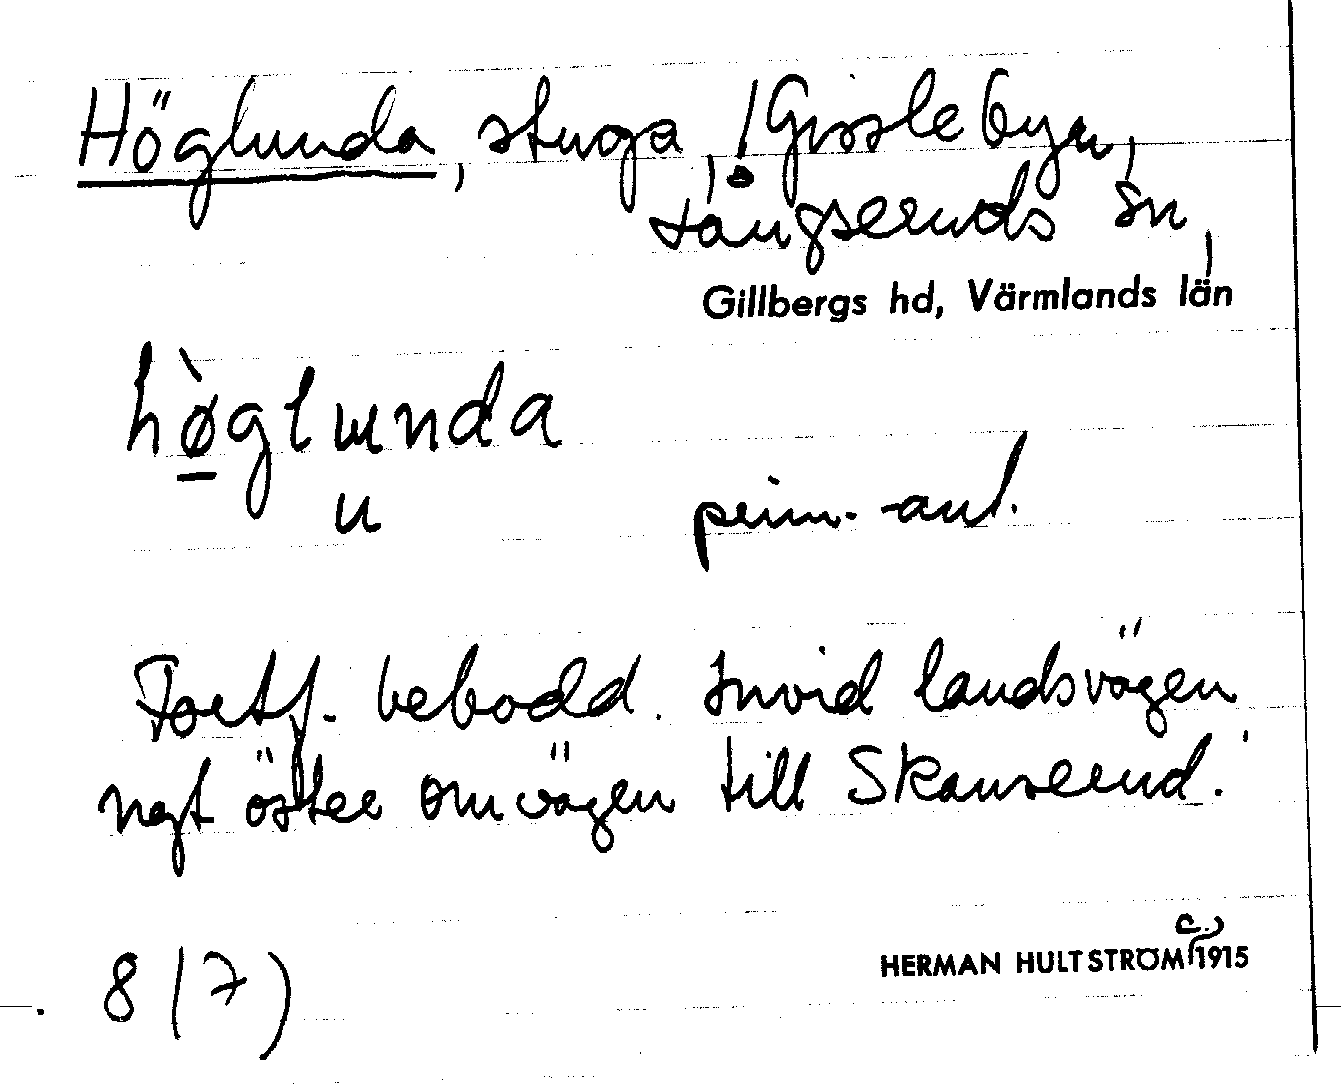 Höglunda, stuga, ! Gisslebyn,
Långseruds sn,
Gillbergs hd, Värmlands län
hø̀glɯnda
u
penn.-anl.
Fortf. bebodd. Invid landsvägen
ngt öster om vägen till Skanserud.
8 (7)
HERMAN HULTSTRÖM (c.) 1915